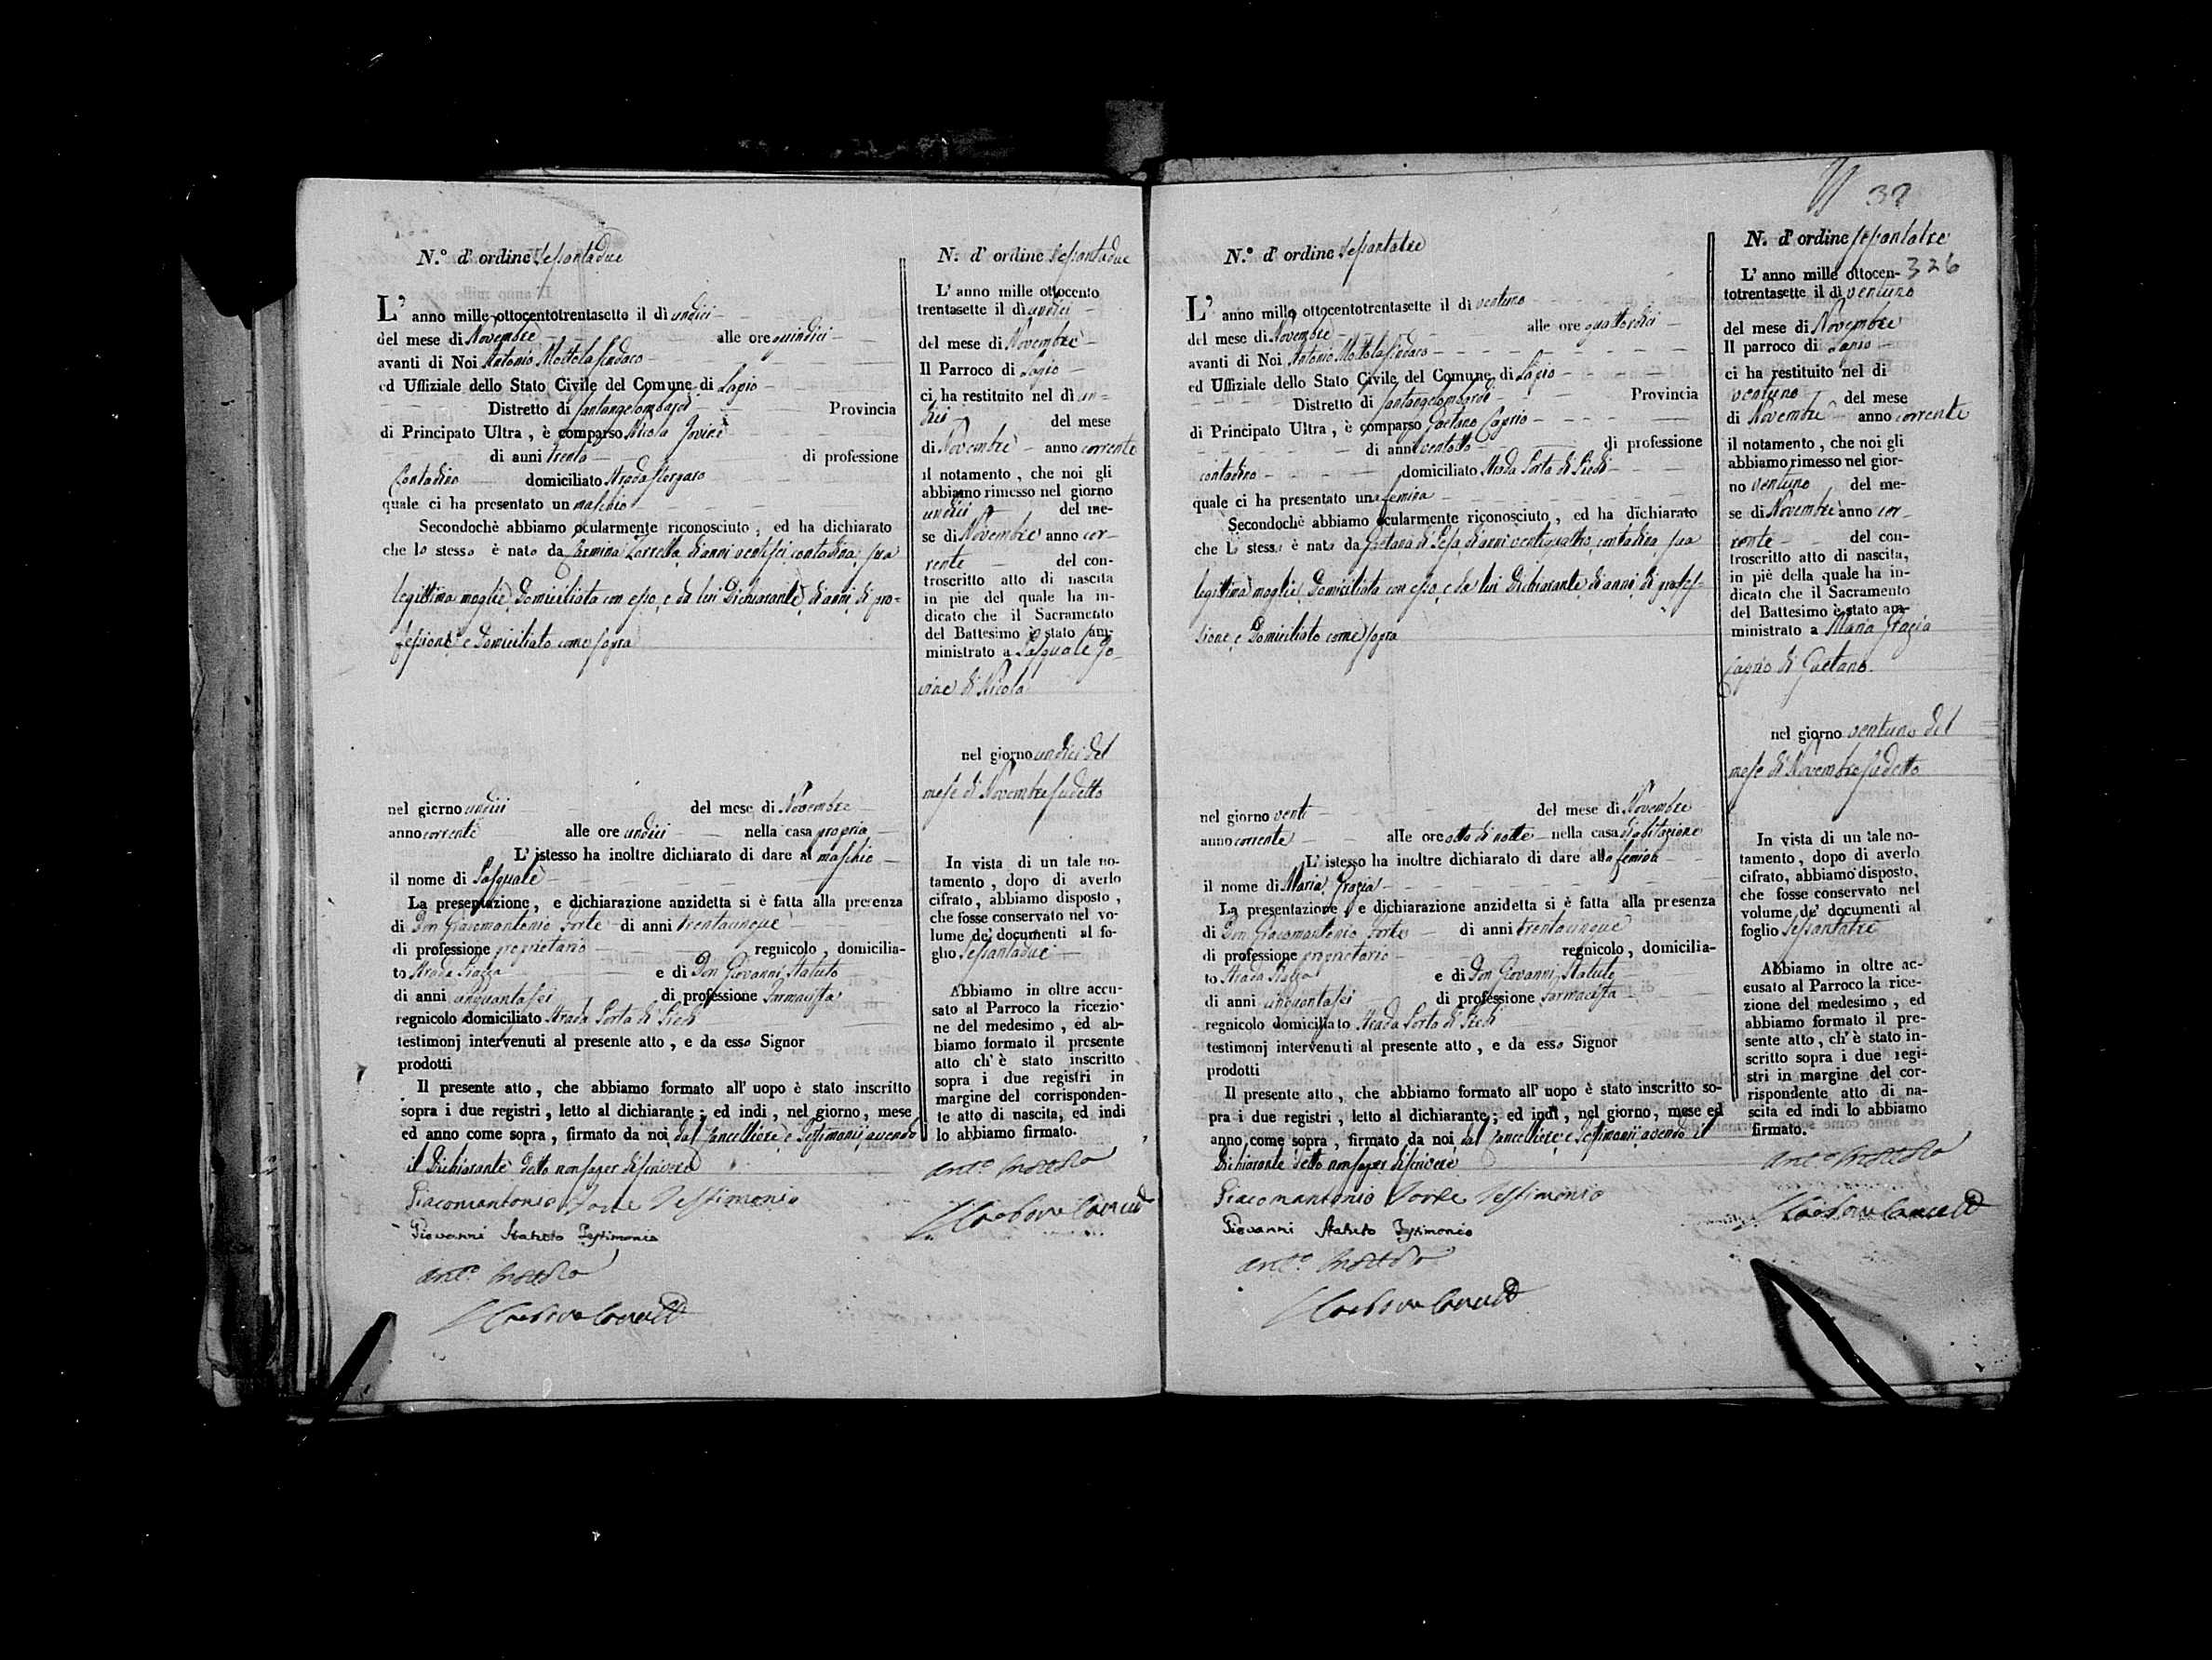 N.° d'ordine Sessantadue
L' anno mille ottocentotrentasette il dì undici
del mese di Novembre alle ore quindici
avanti di Noi Antonio Mottola Sindaco
ed Uffiziale dello Stato Civile del Comune di Lapio
Distretto di Santangelolombardi Provincia
di Principato Ultra, è comparso Nicola Jovine
di anni trenta di professione
Contadino domiciliato Strada
quale ci ha presentato un maschio
Secondochè abbiamo ocularmente riconosciuto, ed ha dichiarato
che lo stesso è nato da Carmina Zarrella di anni ventisei contadina sua
legittima moglie Domiciliata con esso, e da lui Dichiarante di anni, di pro=
fessione e Domiciliato come sopra
nel giorno undici del mese di Novembre
anno corrente alle ore undici nella casa propria
L' istesso ha inoltre dichiarato di dare al maschio
il nome di Pasquale
La presentazione, e dichiarazione anzidetta si è fatta alla presenza
di Don Giacomantonio Forte di anni trentacinque
di professione proprietario regnicolo, domicilia-
to Strada Piazza e di Don Giovanni Statuto
di anni cinquantasei di professione Farmacista
regnicolo domiciliato Strada Porta di Piedi
testimonj intervenuti al presente atto, e da esso Signor
prodotti
Il presente atto, che abbiamo formato all' uopo è stato inscritto
sopra i due registri, letto al dichiarante; ed indi, nel giorno, mese
ed anno come sopra, firmato da noi dal Cancelliere e Testimonij avendo
il Dichiarante detto non saper di scrivere
Giacomantonio Forte Testimonio
Giovanni Statuto Testimonio
Ant.° Mottola
N. d' ordine Sessantadue
L' anno mille ottocento
trentasette il dì undici
del mese di Novembre
Il Parroco di Lapio
ci ha restituito nel dì un=
dici del mese
di Novembre anno corrente
il notamento, che noi gli
abbiamo rimesso nel giorno
undici del me-
se di Novembre anno cor-
rente del con-
troscritto atto di nascita
in pie del quale ha in-
dicato che il Sacramento
del Battesimo è stato am-
ministrato a Pasquale Jo-
vine di Nicola
nel giorno undici del
mese di Novembre sudetto
In vista di un tale no-
tamento, dopo di averlo
cifrato, abbiamo disposto,
che fosse conservato nel vo-
lume de' documenti al fo-
glio Sessantadue
Abbiamo in oltre accu-
sato al Parroco la ricezio-
ne del medesimo, ed ab-
biamo formato il presente
atto ch' è stato inscritto
sopra i due registri in
margine del corrisponden-
te atto di nascita, ed indi
lo abbiamo firmato.
Ant.° Mottola
N.° d' ordine Sessantatre
L' anno mille ottocentotrentasette il dì ventuno
del mese di Novembre alle ore quattordici
avanti di Noi Antonio Mottola Sindaco
ed Uffiziale dello Stato Civile del Comune di Lapio
Distretto di Santangelolombardi Provincia
di Principato Ultra, è comparso Gaetano Caprio
di anni ventotto di professione
contadino domiciliato Strada Porta di Piedi
quale ci ha presentato una femina
Secondochè abbiamo ocularmente riconosciuto, ed ha dichiarato
che la stessa è nata da Gaetana di Sesa di anni ventiquattro contadina sua
legittima moglie, Domiciliata con esso, e da lui Dichiarante di anni, di profes-
sione, e Domiciliato come sopra
nel giorno venti del mese di Novembre
anno corrente alle ore otto di notte nella casa d'abitazione
L' istesso ha inoltre dichiarato di dare alla femina
il nome di Maria Grazia
La presentazione, e dichiarazione anzidetta si è fatta alla presenza
di Don Giacomantonio Forte di anni trentacinque
di professione proprietario regnicolo, domicilia-
to Strada Piazza e di Don Giovanni Statuto
di anni cinquantasei di professione Farmacista
regnicolo domiciliato Strada Porta di Piedi
testimonj intervenuti al presente atto, e da esso Signor
prodotti
Il presente atto, che abbiamo formato all' uopo è stato inscritto so-
pra i due registri, letto al dichiarante; ed indi, nel giorno, mese ed
anno come sopra, firmato da noi dal Cancelliere e Testimonij avendo il
Dichiarante detto non saper di scrivere
Giacomantonio Forte Testimonio
Giovanni Statuto Testimonio
Ant.° Mottola
N. d' ordine Sessantatre
326
L' anno mille ottocen-
totrentasette il dì ventuno
del mese di Novembre
Il parroco di Lapio
ci ha restituito nel di
ventuno del mese
di Novembre anno corrente
il notamento, che noi gli
abbiamo rimesso nel gior-
no ventuno del me-
se di Novembre anno cor-
rente del con-
troscritto atto di nascita,
in piè della quale ha in-
dicato che il Sacramento
del Battesimo è stato am-
ministrato a Maria Grazia
Caprio di Gaetano
nel giorno ventuno del
mese di Novembre sudetto
In vista di un tale no-
tamento, dopo di averlo
cifrato, abbiamo disposto,
che fosse conservato nel
volume de' documenti al
foglio Sessantatre
Abbiamo in oltre ac-
cusato al Parroco la rice-
zione del medesimo, ed
abbiamo formato il pre-
sente atto, ch' è stato in-
scritto sopra i due regi-
stri in margine del cor-
rispondente atto di na-
scita ed indi lo abbiamo
firmato.
Ant.° Mottola